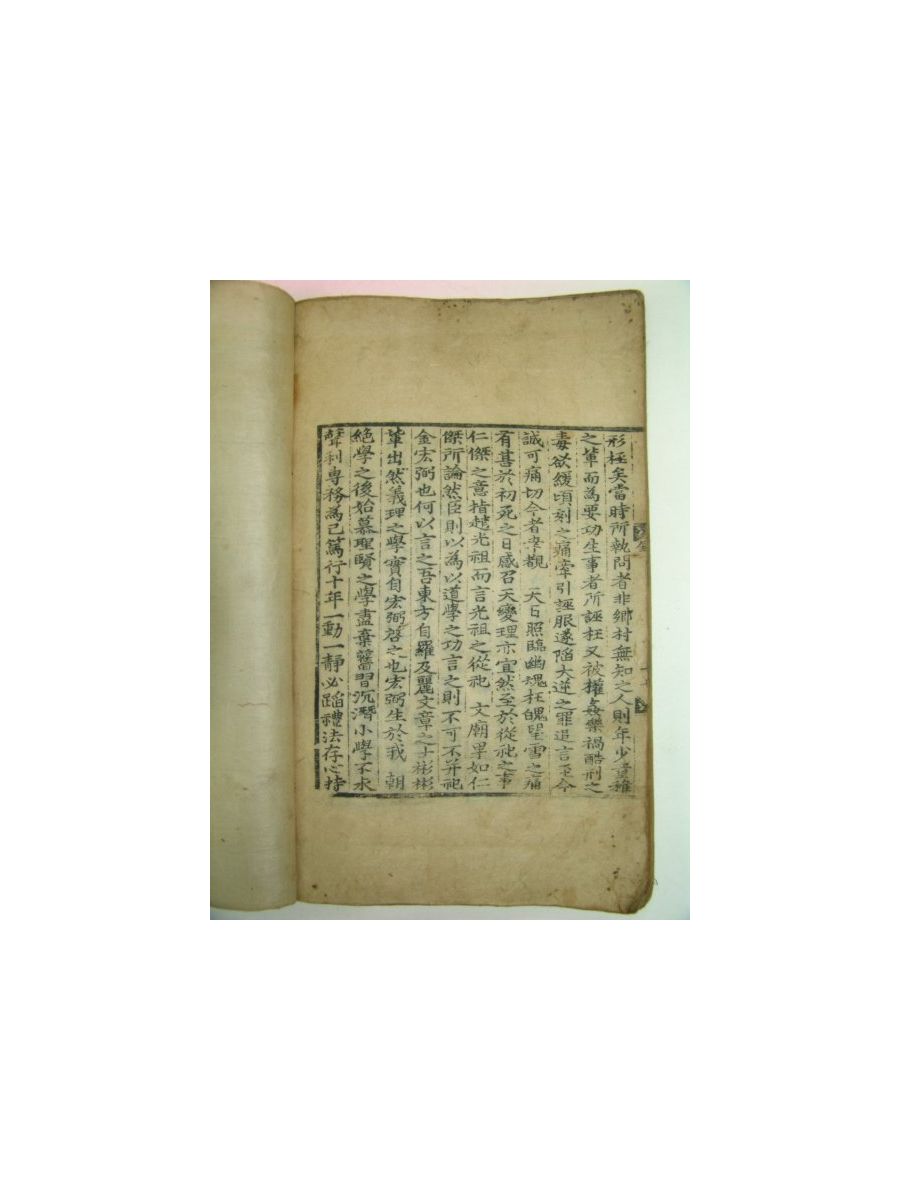 形枉矣當時所執問者非鄉村無知之人則年少童稚
之輩而爲要功生事者所誣枉又被權姦樂禍酷刑之
毒欲緩頃刻之痛牽引誣服遂陷大逆之罪追言至今
誠可痛切今者幸觀 天日照臨幽魂枉魄望雪之痛
有甚於初死之日感召天變理亦宜然至於從祀之事
仁傑之意指趙光祖而言光祖之從祀 文廟畢如仁
傑所論然臣則以爲以道學之功言之則不可不幷祀
金宏弼也何以言之吾東方自羅及麗文章之士彬彬
輩出然義理之學實自宏弼啓之也宏弼生於我 朝
絕學之後始慕聖賢之學盡棄舊習沉潛小學不求
聲利專務爲己篤行十年一動一靜必蹈禮法存心持